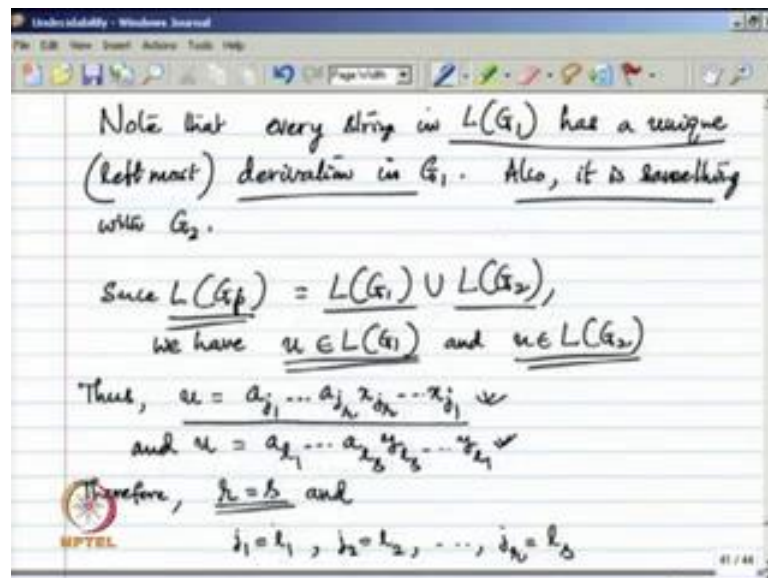 Undecidability - Windows Journal
File Edit View Insert Actions Tools Help
Page Width
Note that every string in L(G₁) has a unique
(left most) derivation in G₁. Also, it is something
with G₂.
Since L(Gp) = L(G₁) ∪ L(G₂),
we have u ∈ L(G₁) and u ∈ L(G₂)
Thus, u = a_{j₁} ... a_{j_r} x_{j_r} ... x_{j₁}
and u = a_{l₁} ... a_{l_s} y_{l_s} ... y_{l₁}
Therefore, r = s and
j₁ = l₁, j₂ = l₂, ..., j_r = l_s
NPTEL
41 / 44